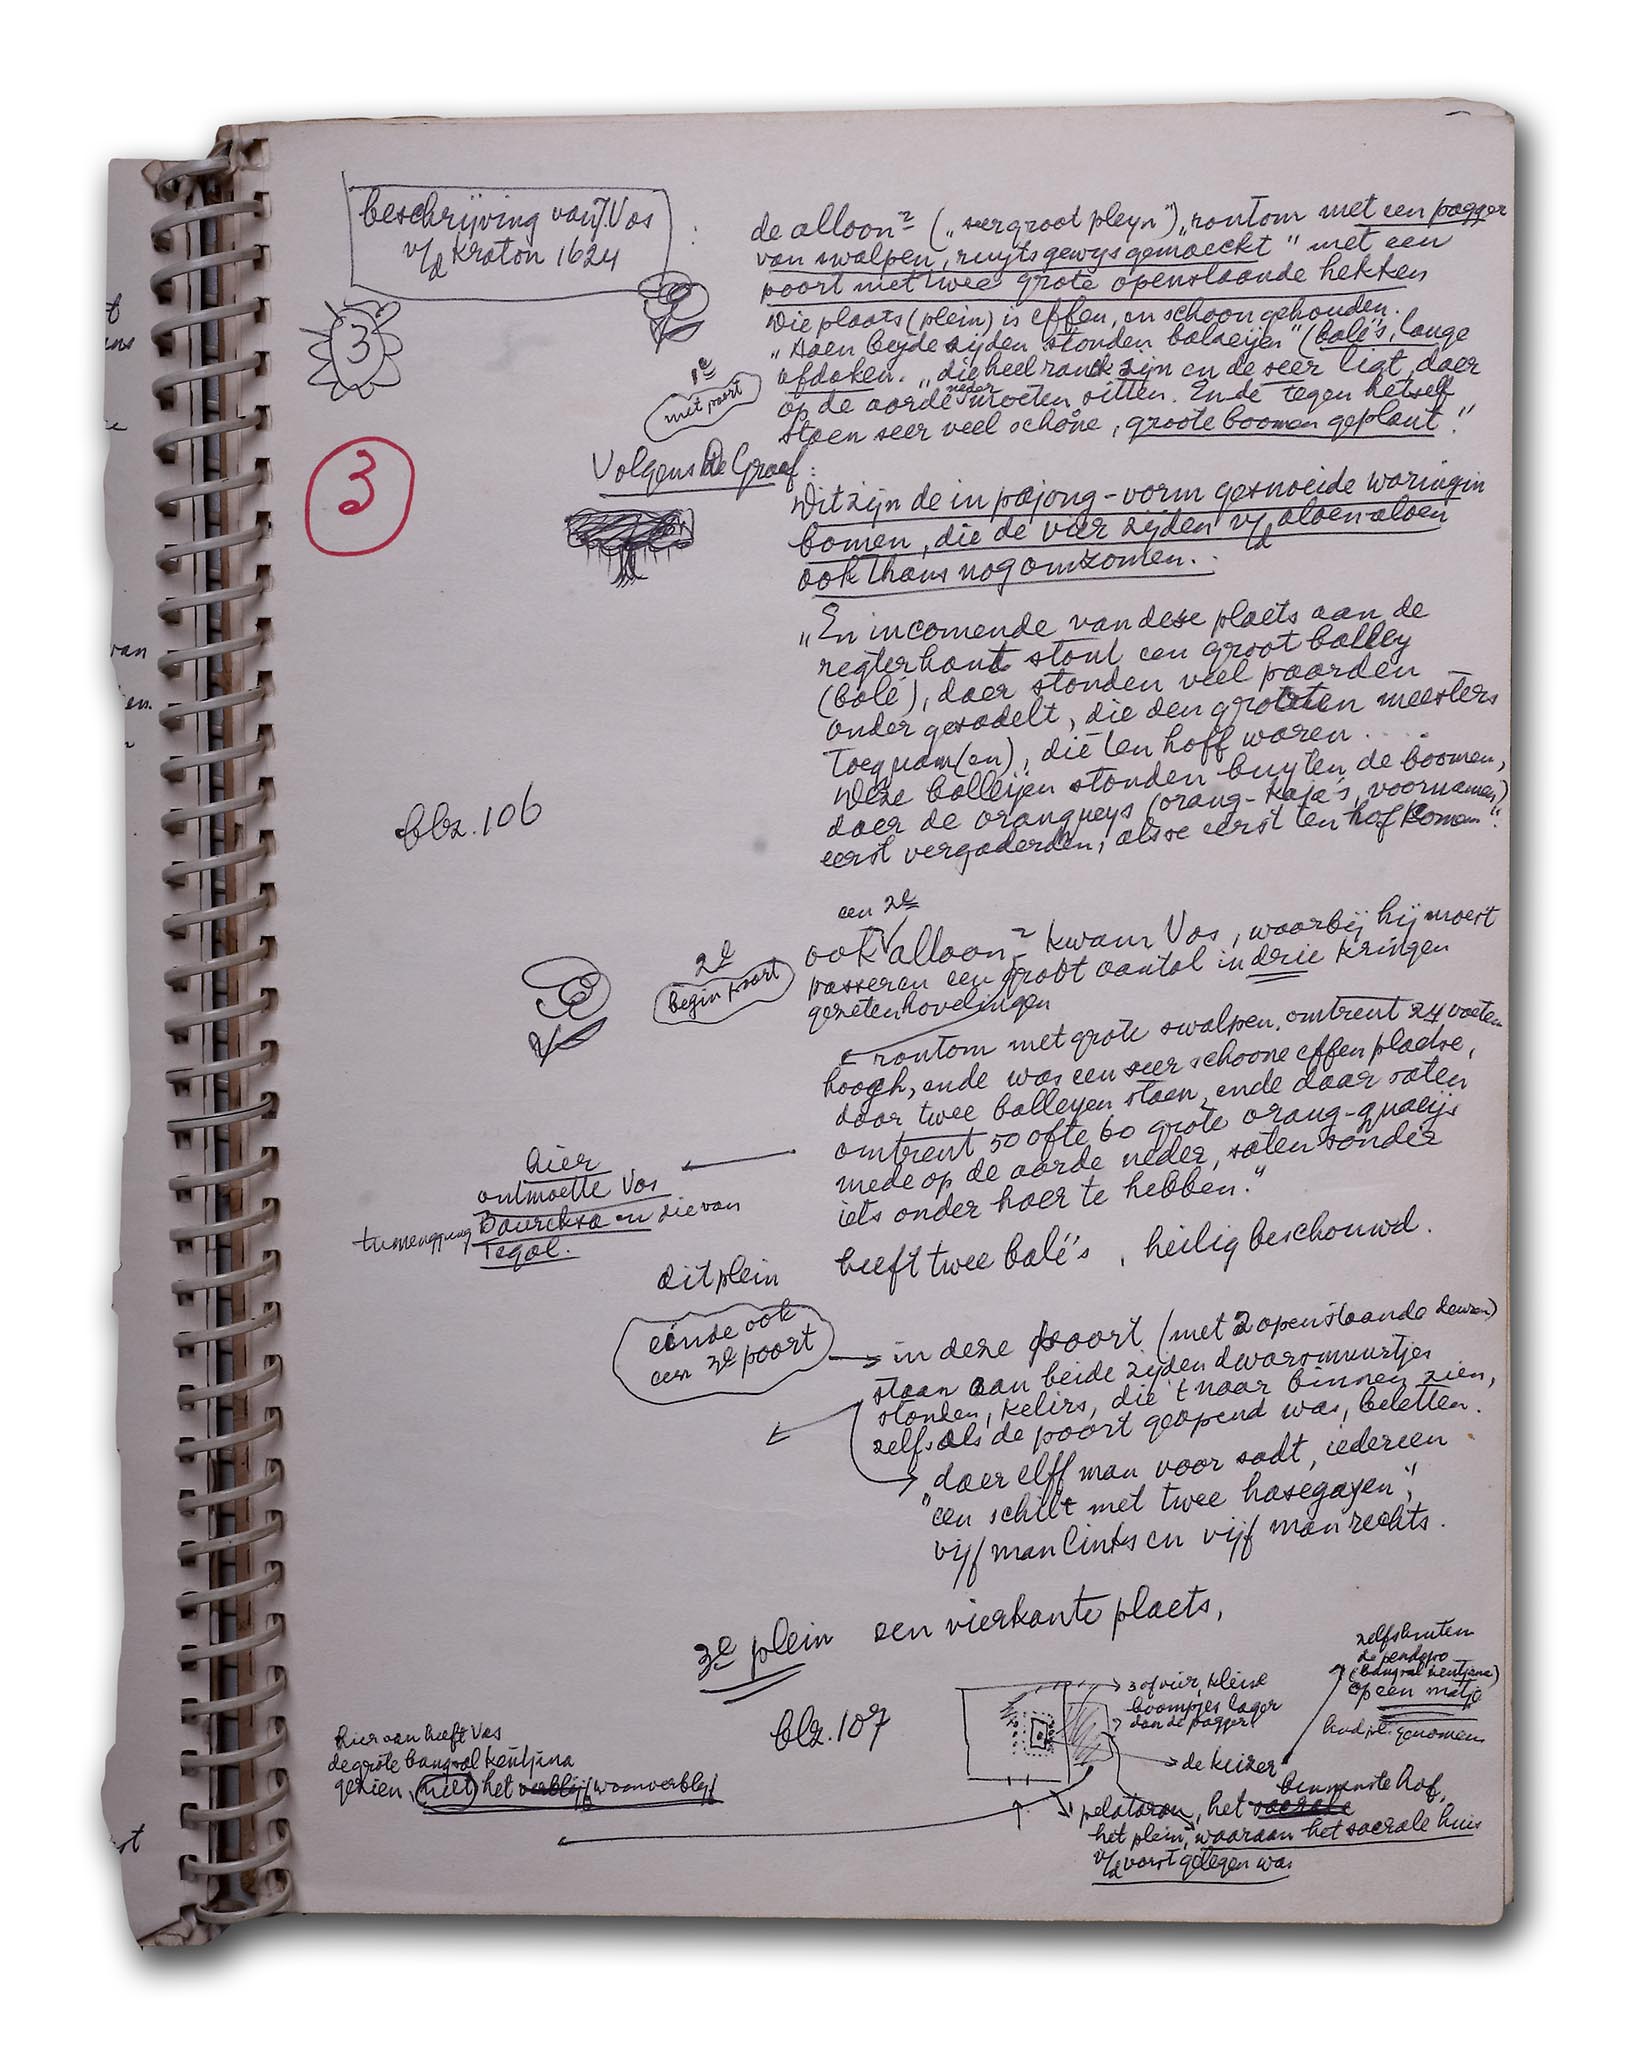 beschrijving van J. Vos
v/d Kraton 1624
3
:
de alloon² („seer groot pleyn") „rontom met een pagger
van swalpen, ruytsgewys gemaeckt" met een
poort met twee grote openslaande hekken
Die plaats (plein) is effen, en schoon gehouden.
„Aen beyde zijden stonden baleijen" (balé's, lange
afdaken. „die heel ranck zijn en de seer ligt, daer
op de aarde neder moeten sitten. Ende tegen hetself
staen seer veel schone, groote boomen geplant."
1e
met poort
3
Volgens De Graaf:
Dit zijn de in pajong-vorm gesnoeide waringin
bomen, die de vier zijden v/d aloen aloen
ook thans nog omzomen.
„En incomende van dese plaets aan de
regterhant stont een groot balley
(balé), daer stonden veel paarden
onder gesadelt, die den grooten meesters
toequam(en), die ten hoff waren ....
Deze balleijen stonden buyten de boomen,
daer de orangueys (orang-kaja's, voornamen)
eerst vergaderden, als se eerst ten hof komen".
blz. 106
een 2e
ook alloon² kwam Vos, waarbij hij moest
passeren een groot aantal in drie kringen
gezeten hovelingen
2e
begin poort
rontom met grote swalpen, omtrent 24 voeten
hoogh, ende was een seer schoone effen plaetse,
daar twee balleyen staen, ende daar saten
omtrent 50 ofte 60 grote orang-quaeijs
mede op de aarde neder, saten sonder
iets onder haer te hebben."
hier
ontmoette Vos
tumenggung Baureksa en die van
Tegal.
dit plein heeft twee balé's, heilig beschouwd.
einde ook
een 3e poort
in deze poort (met 2 openslaande deuren)
staan aan beide zijden dwarsmuurtjes
stonden, kelirs, die 't naar binnen zien,
zelfs als de poort geopend was, beletten.
daer elff man voor sadt, iedereen
"een schilt met twee hasegayen",
vijf man links en vijf man rechts.
3e plein een vierkante plaets,
blz. 107
3 of vier, kleine
boompjes lager
dan de pagger
de keizer
zelfs buiten
de pendopo
(bangsal kentjana)
op een matje
had pl. genomen
pelataran, het sacrale binnenste hof,
het plein, waaraan het sacrale huis
v/d vorst gelegen was
hier van heeft Vos
de grote bangsal kentjana
gezien, niet het verblijf woonverblijf